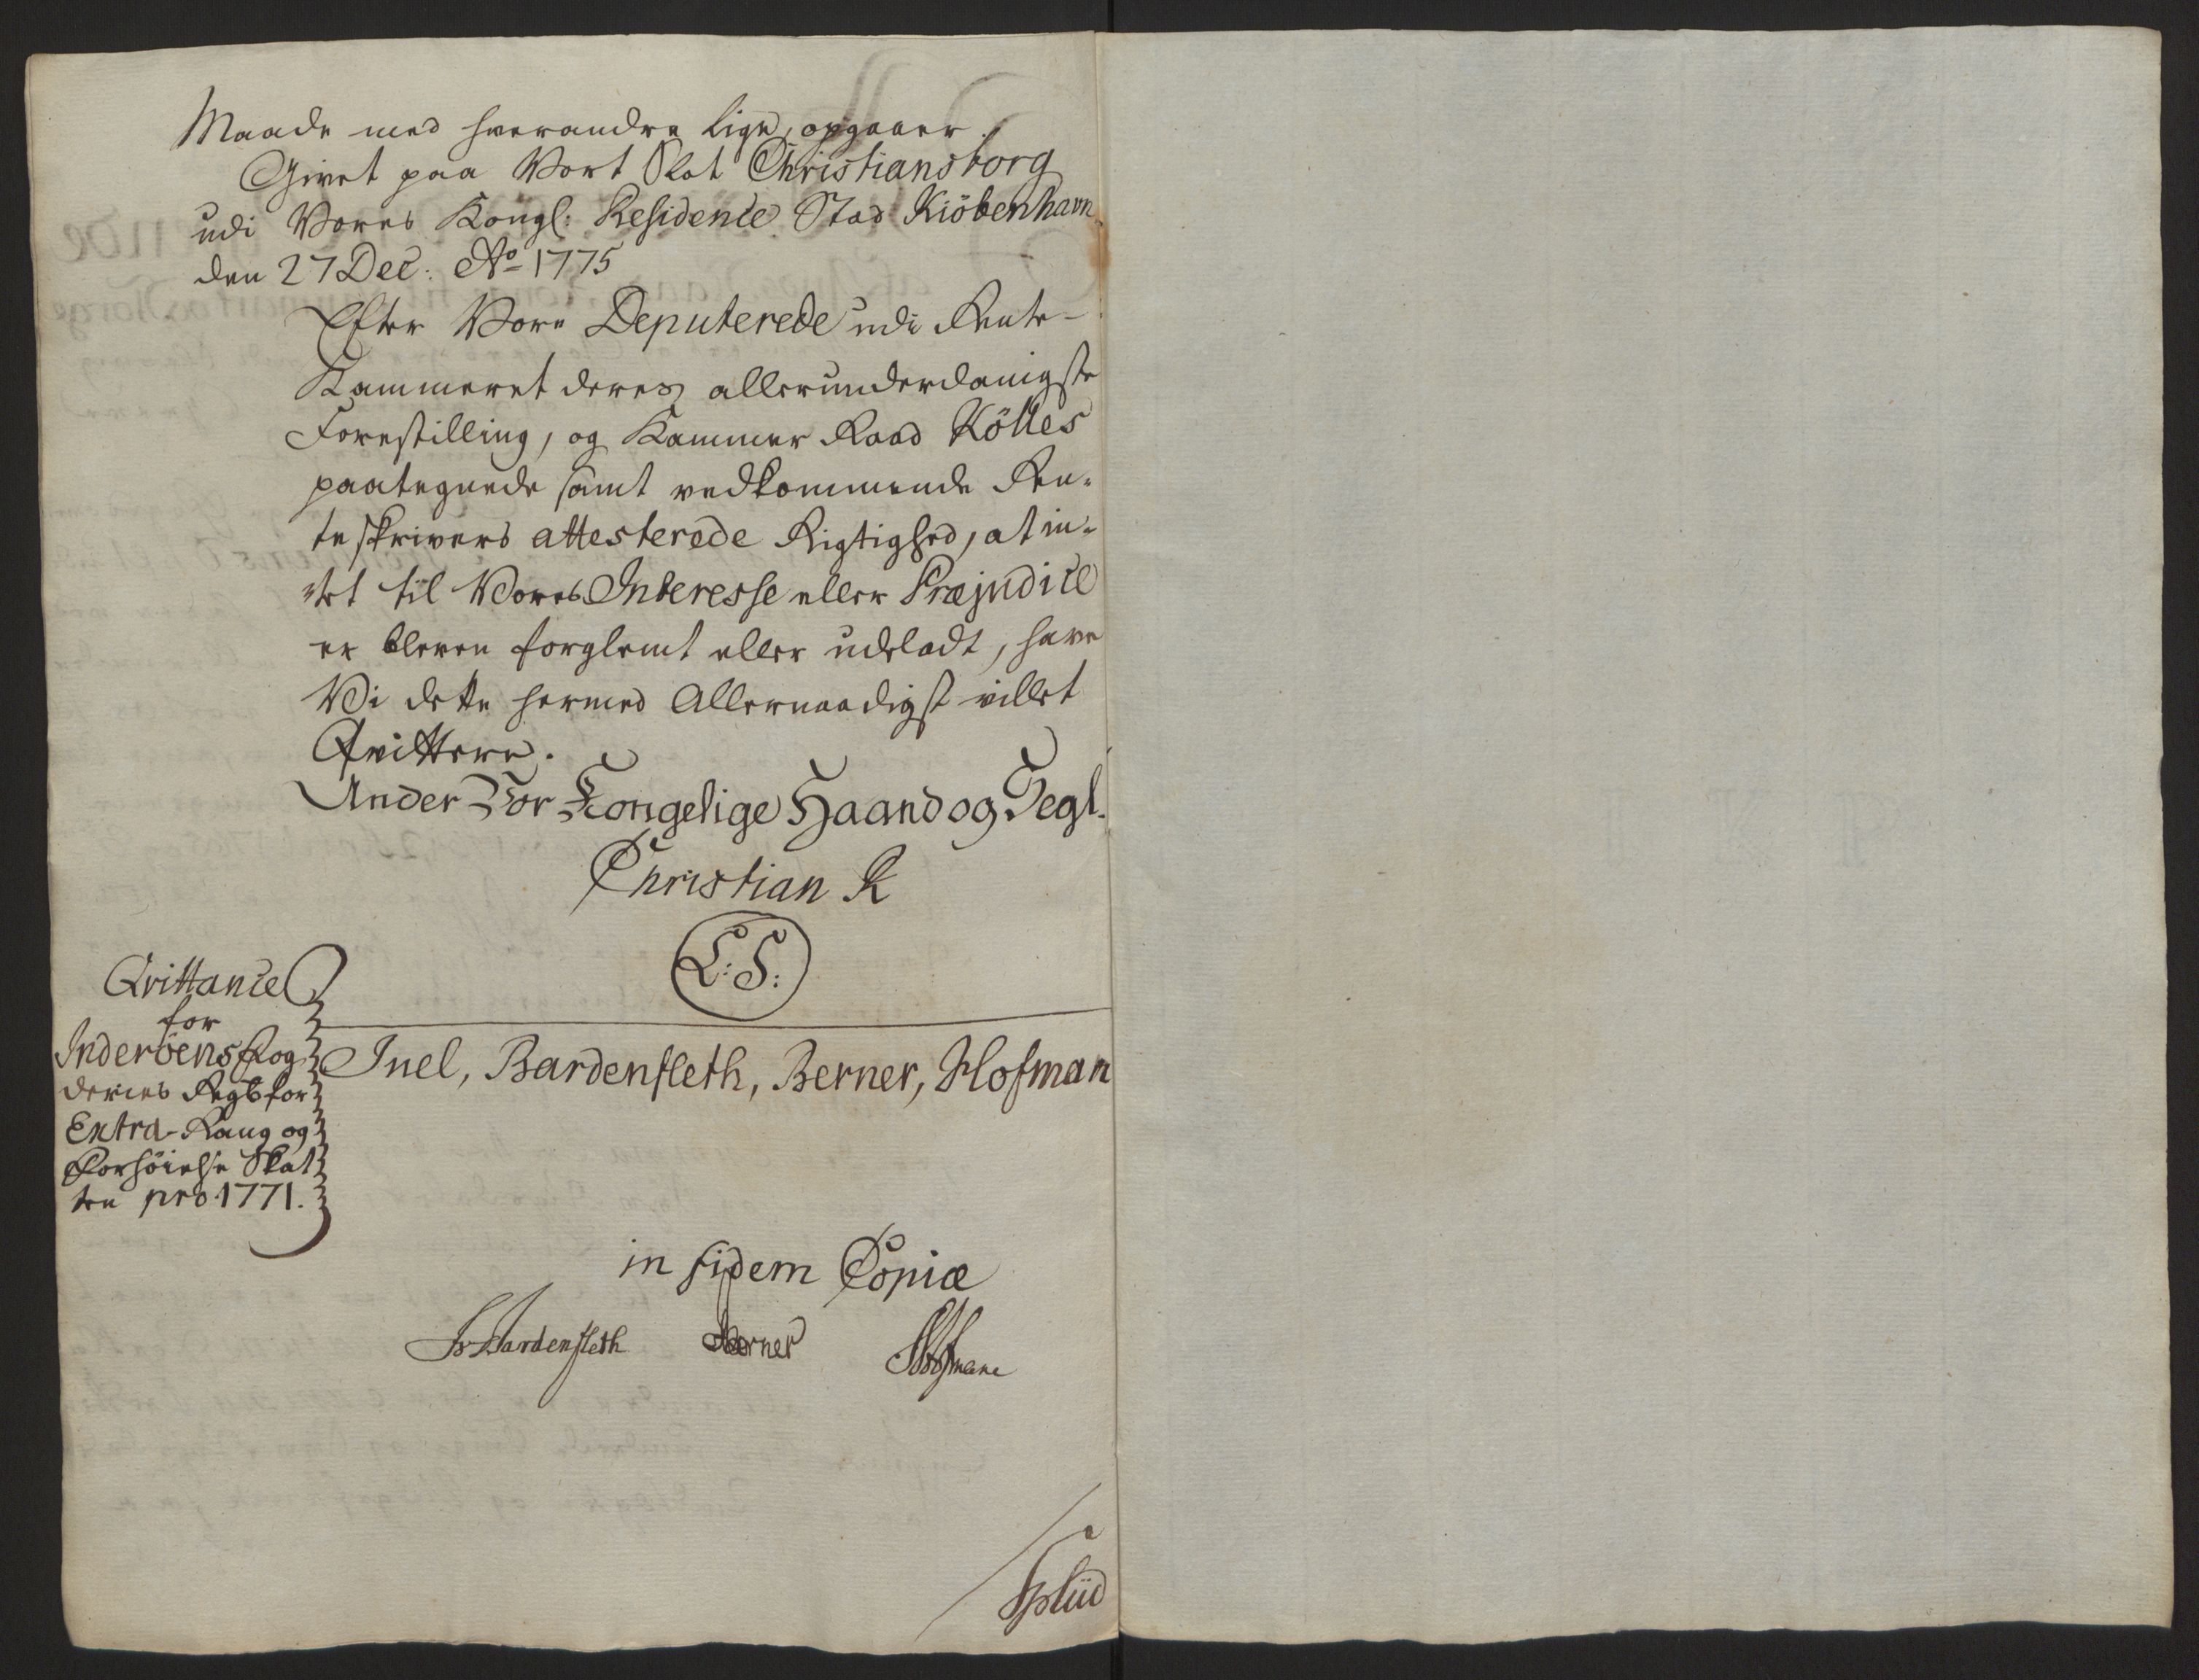 Maade med hverandre lige opgaaer.
Givet paa Vort Slot Christiansborg
udi Vores Kongl: Residence Stad Kiöbenhavn
den 27 Dec: Aº 1775
Efter Vore Deputerede udi Rente-
Kammeret deres allerunderdanigste
Forestilling, og Kammer Raad Kölles
paategnede samt vedkommende Ren-
teskrivers attesterede Rigtighed, at in-
tet til Vores Interesse eller Præjudice
er bleven forglemt eller udeladt, have
Vi dette hermed Allernaadigst villet
Qvittere.
Under Vor Kongelige Haand og Segl.
Christian R
L: S:
Qvittance
for
Inderöens Fog
deries Regsk for
Extra-Rang og
Forhöielse Skat
ten pro 1771.
Juel, Bardenfleth, Berner, Hofman
in fidem Copiæ
Bardenfleth Berner Hofmann